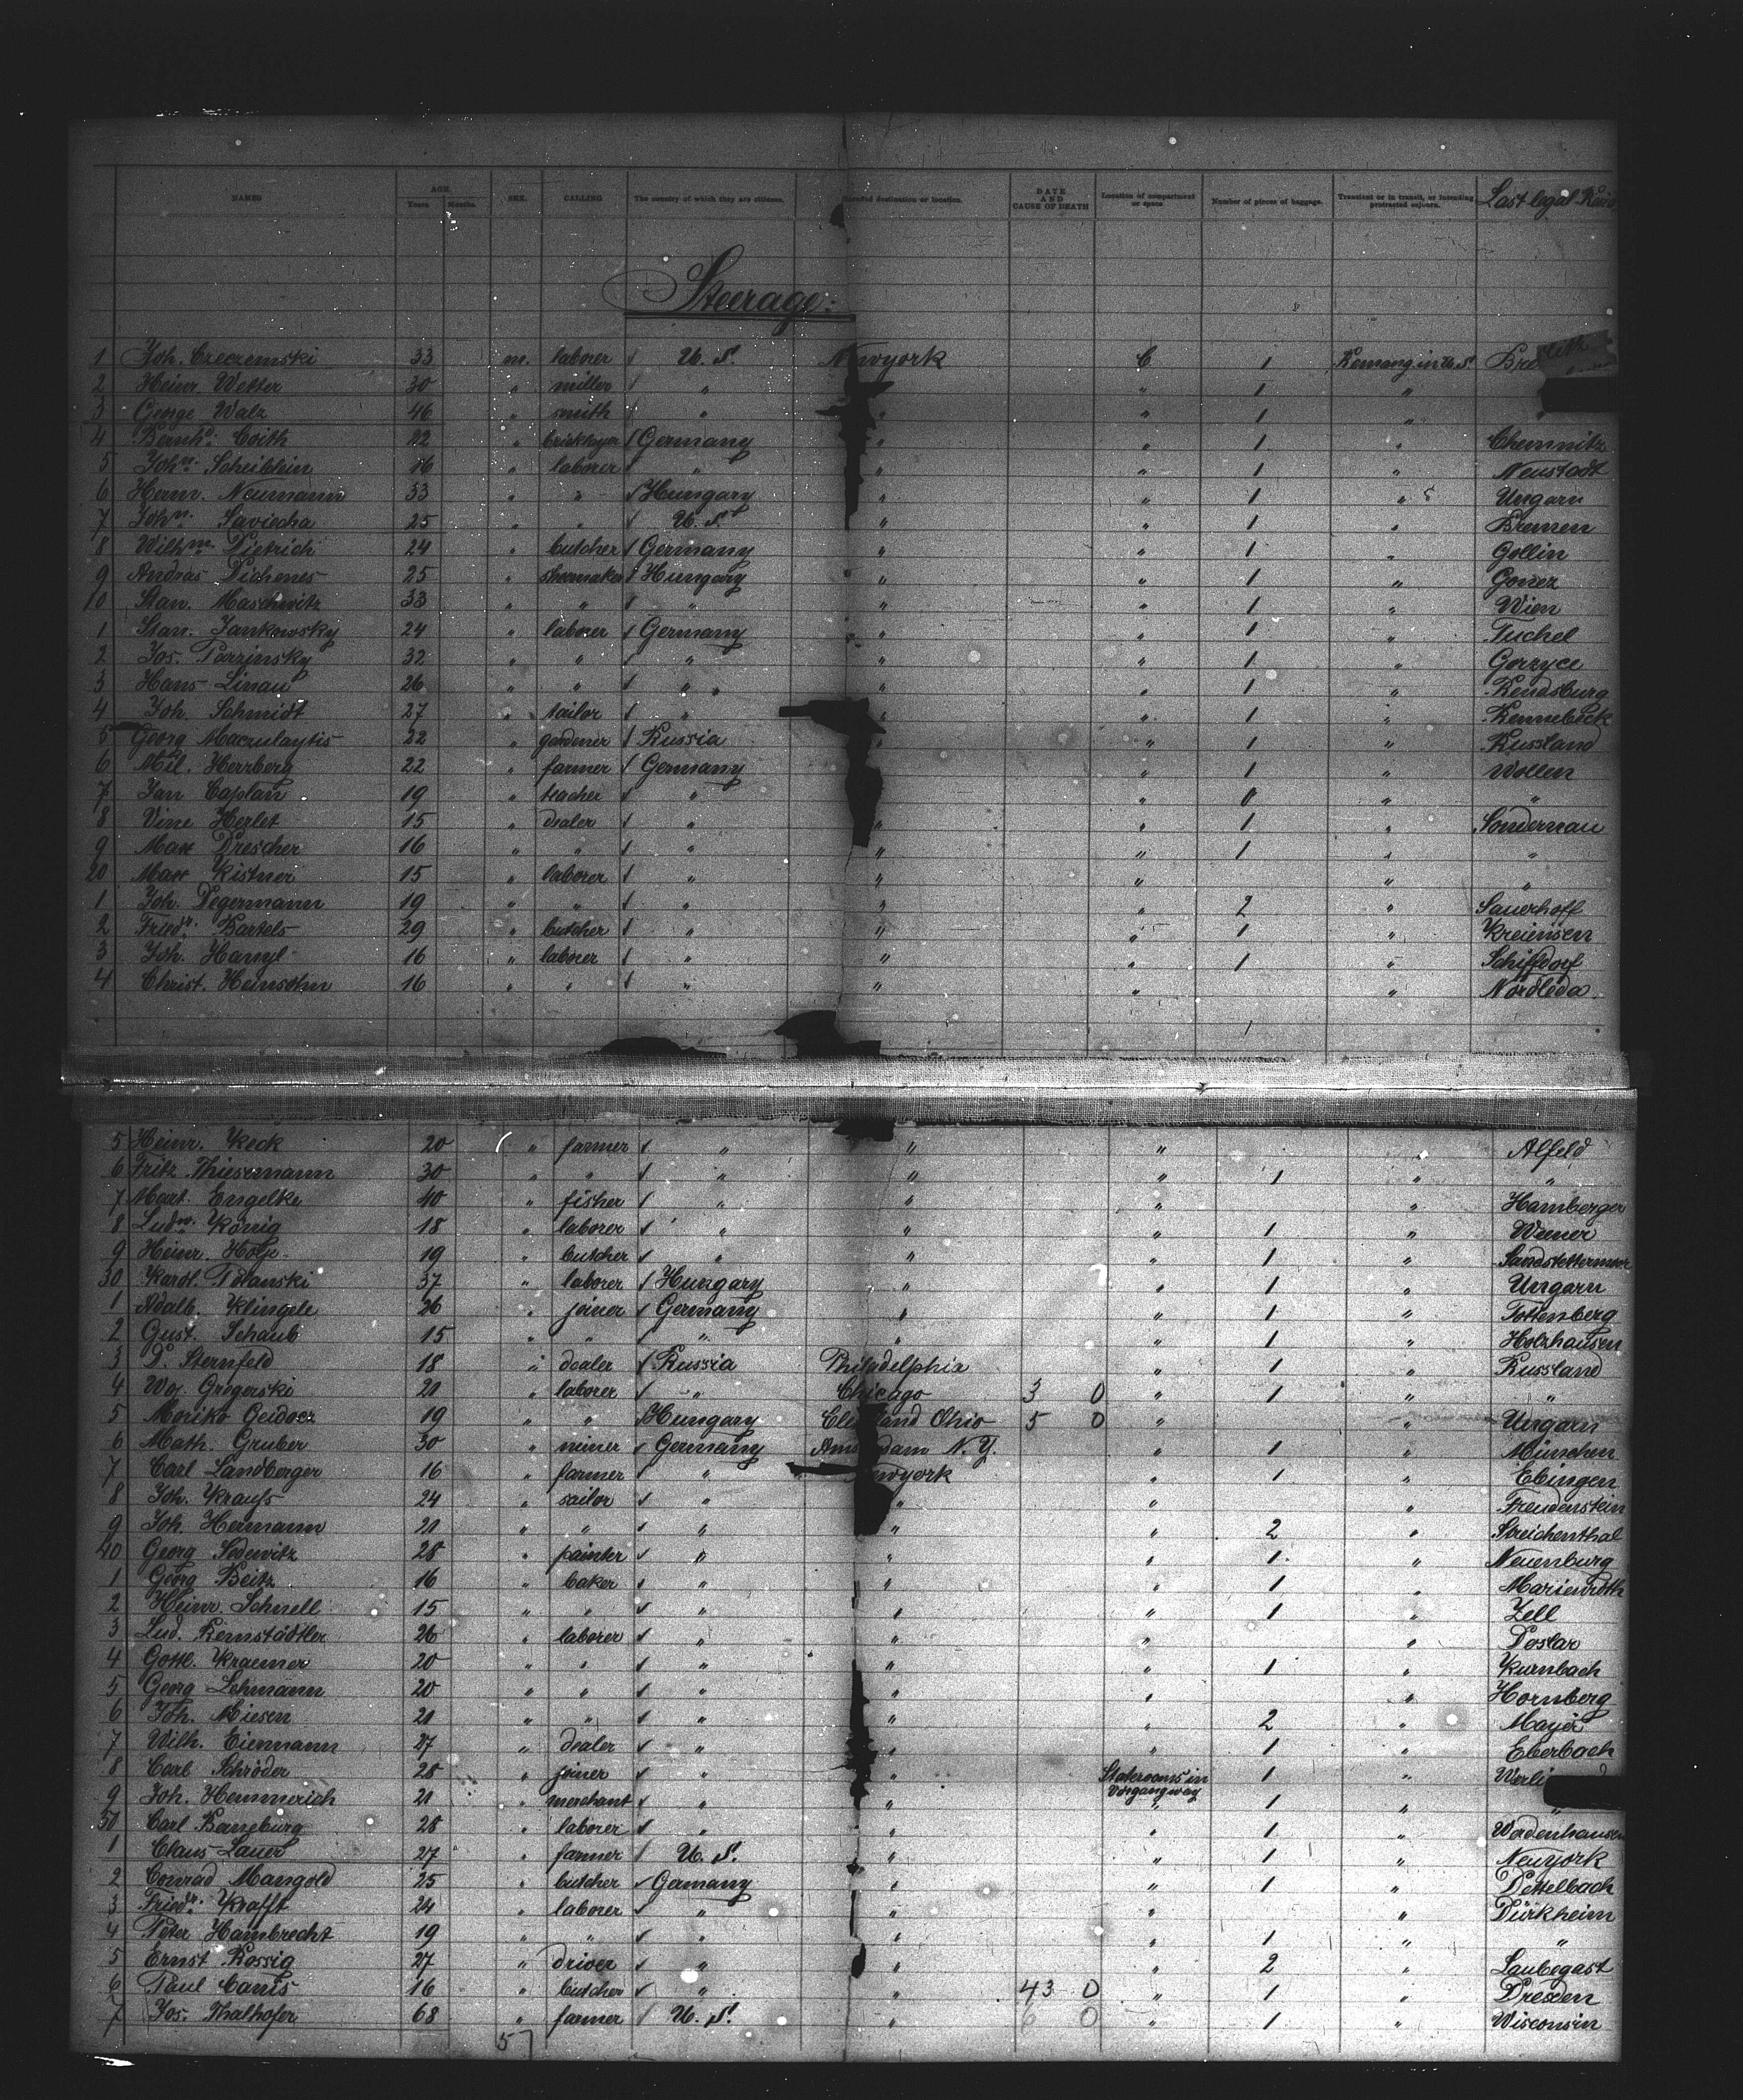 NAMES AGE. Years Months. SEX. CALLING The country of which they are citizens. Intended destination or location. DATE AND CAUSE OF DEATH Location of compartment or space Number of pieces of baggage. Transient or in transit, or intending protracted sojourn. Last legal
Steerage:
1 Joh. Czeczemski 33 m. laborer U. S. Newyork C 1 Remang. in U. S.
2 Heinr. Vetter 30 " miller " " 1 "
3 George Walz 46 " smith " " " 1 "
4 Bernhd. Coith 22 " bricklayer Germany " " 1 " Chemnitz
5 Johs. Scheiblein 16 " laborer " " " 1 " Neustadt
6 Herm. Neumann 33 " " Hungary " " 1 " Ungarn
7 Johs. Saviecha 25 " " U. S. " " 1 " Bremen
8 Wilhm. Dietrich 24 " butcher Germany " " 1 " Gollin
9 Andras Dichenes 25 " shoemaker Hungary " " 1 " Gonez
10 Stan. Maschwitz 33 " " " " " 1 " Wien
1 Stan. Jankowsky 24 " laborer Germany " " 1 " Tuchel
2 Jos. Parzinsky 32 " " " " " 1 " Gorzyce
3 Hans Linau 26 " " " " " 1 " Rendsburg
4 Joh. Schmidt 27 " tailor " " " 1 " Rennebeck
5 Georg Maczulaytis 22 " gardener Russia " " 1 " Russland
6 Mil. Herzberg 22 " farmer Germany " " 1 " Wollen
7 Jan Caplan 19 " teacher " " 0 " "
8 Vine Herlet 15 " dealer " " " 1 " Sondernau
9 Max Drescher 16 " " " " " 1 " "
20 Max Kistner 15 " laborer " " " " "
1 Joh. Degermann 19 " " " " " 2 " Sauerhoff
2 Friedr. Bartels 29 " butcher " " " 1 " Kreiensen
3 Joh. Hanyl 16 " laborer " " " 1 " Schiffdorf
4 Christ. Heinsohn 16 " " " " " " Nordleda
5 Heinr. Keck 20 " farmer " " " " Alfeld
6 Fritz Thiesemann 30 " " " " " 1 " "
7 Mart. Engelke 40 " fisher " " " " Hamberger
8 Ludw. König 18 " laborer " " " 1 " Weener
9 Heinr. Holje 19 " butcher " " " 1 " Sandstettermoor
30 Karol. Polanski 37 " laborer Hungary " " 1 " Ungarn
1 Adalb. Klingele 26 " joiner Germany " " 1 " Tottenberg
2 Gust. Schaub 15 " " " " " 1 " Holzhausen
3 D. Sternfeld 18 " dealer Russia Philadelphia " 1 " Russland
4 Woj. Grogerski 21 " laborer " Chicago 3 0 " 1 " "
5 Moriko Geidocz 19 " " Hungary Cleveland Ohio 5 0 " " Ungarn
6 Math. Gruber 30 " miner Germany Amsterdam N. Y. " 1 " München
7 Carl Landberger 16 " farmer " Newyork " 1 " Ebingen
8 Joh. Krauss 24 " sailor " " " " Freudenstein
9 Joh. Hermann 21 " " " " " 2 " Streichenthal
40 Georg Sedewitz 28 " painter " " " 1 " Neuenburg
1 Georg Beitz 16 " baker " " " 1 " Marienroth
2 Heinr. Schnell 15 " " " " " 1 " Zell
3 Lud. Remstädtler 26 " laborer " " " " Doslar
4 Gottl. Kraemer 20 " " " " " 1 " Kurnbach
5 Georg Lehmann 20 " " " " " " Hornberg
6 Joh. Miesen 21 " " " " " 2 " Mayer
7 Wilh. Eiermann 27 " dealer " " " 1 " Eberbach
8 Carl Schröder 28 " joiner " " Staterooms in Vorgangway 1 "
9 Joh. Hemmerich 21 " merchant " " " 1 " "
50 Carl Berneburg 28 " laborer " " " 1 " Wodenhausen
1 Claus Lauer 27 " farmer U. S. " " 1 " Newyork
2 Conrad Mangold 25 " butcher Germany " " 1 " Dettelbach
3 Friedr. Krafft 24 " laborer " " " " Dürkheim
4 Peter Hambrecht 19 " " " " " 1 " "
5 Ernst Rossig 27 " driver " " " 2 " Laubegast
6 Paul Canis 16 " butcher " " 43 0 " 1 " Dresden
7 Jos. Thalhofer 68 " farmer U. S. " 6 0 " 1 " Wisconsin
57